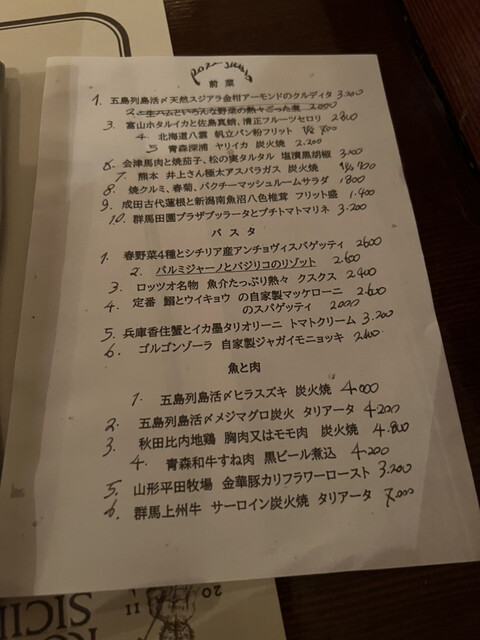 前菜
1. 五島列島活〆天然スジアラ金柑アーモンドのクルディタ 3.200
2. 生ハムといろんな野菜の熱々ごった煮 2000
3. 富山ホタルイカと佐島真蛸、清正フルーツセロリ 2800
4 北海道八雲 帆立パン粉フリット 1/2 800
5 青森深浦 ヤリイカ 炭火焼 2.200
6. 会津馬肉と焼茄子、松の実タルタル 塩漬黒胡椒 3,100
7. 熊本 井上さん極太アスパラガス 炭火焼
8. 焼クルミ、春菊、パクチーマッシュルームサラダ 1800
9. 成田古代蓮根と新潟南魚沼八色椎茸 フリット盛 1.400
10. 群馬田園プラザブッラータとプチトマトマリネ 3.200
パスタ
1. 春野菜4種とシチリア産アンチョヴィスパゲッティ 2600
2. パルミジャーノとバジリコのリゾット 2.600
3. ロッツオ名物 魚介たっぷり熱々 クスクス 2400
4. 定番 鰯とウイキョウ の自家製マッケローニ 2.600
のスパゲッティ 2000
5. 兵庫香住蟹とイカ墨タリオリーニ トマトクリーム 3.200
6. ゴルゴンゾーラ 自家製ジャガイモニョッキ 2600
魚と肉
1. 五島列島活〆ヒラスズキ 炭火焼 4.000
2. 五島列島活〆メジマグロ炭火 タリアータ 4200
3. 秋田比内地鶏 胸肉又はモモ肉 炭火焼 4.800
4. 青森和牛すね肉 黒ビール煮込 4200
5. 山形平田牧場 金華豚カリフラワーロースト 3.200
6. 群馬上州牛 サーロイン炭火焼 タリアータ
SICIL
20
11